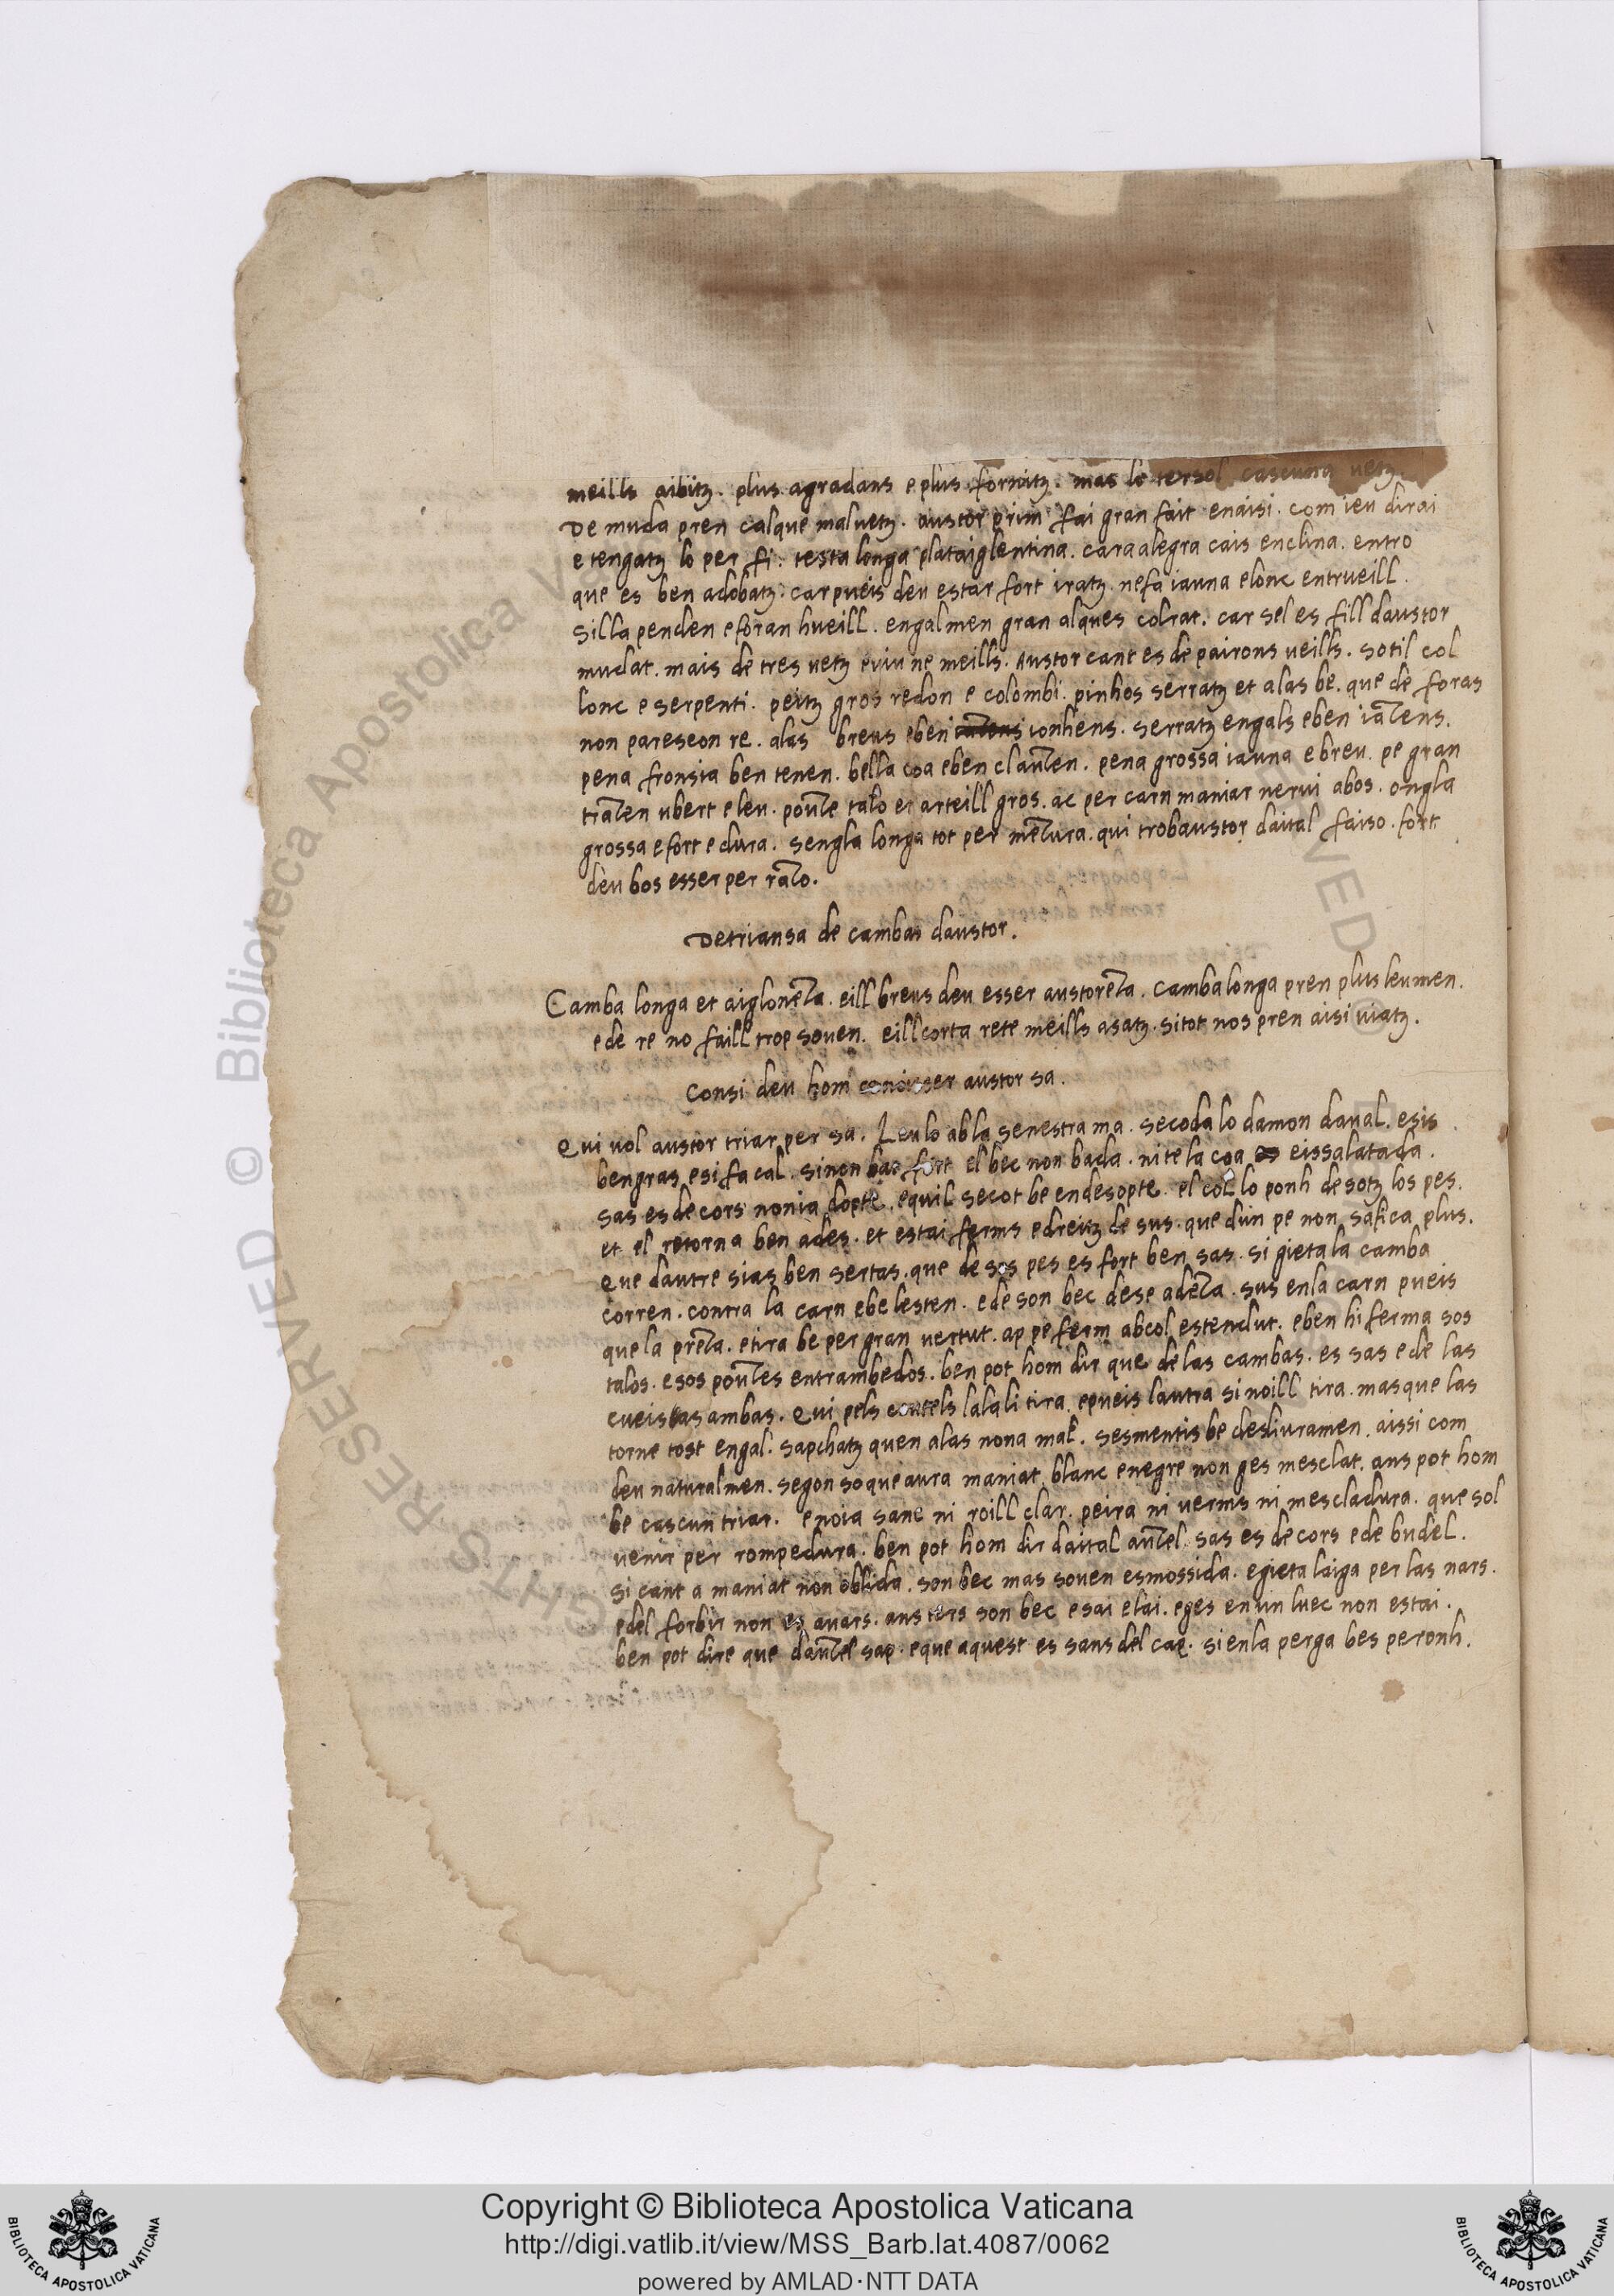 meills aibitz. plus agradans e plus fornitz. mas lo tersol cascuna vetz.
De muda pren calque malvetz. austor prim fai gran fait enaisi. com ieu dirai
e tengatz lo per fi. testa longa plataiglentina. cara alegra cais enclina. entro
que es ben adobatz. car pueis deu estar fort iratz. nefa iauna e lonc entrueill.
Silla penden e foran hueill. engalmen gran alques colrat. car sel es fill daustor
mudat. mais de tres vetz eviu ne meills. Austor cant es de pairons veills. sotil col
lonc e serpenti. peitz gros redon e colombi. pinhos serratz et alas be. que de foras
non pareseon re. alas breus eben ionhens. serratz engals eben iatens.
pena fronsia ben tenen. bella coa eben clauten. pena grossa iauna e breu. pe gran
traten ubert e leu. poute talo et arteill gros. ac per carn maniar nervi abos. ongla
grossa e fort e dura. sengla longa tot per metura. qui trobaustor daital faiso. fort
deu bos esser per rato.
Detriansa de cambas daustor.
Camba longa et aigloneta. eill breus deu esser austoreta. Camba longa pren plus leumen.
e de re no faill trop soven. eill corta rete meills asatz. sitot nos pren aisi viatz.
Consi deu hom conoisser austor sa.
Qui vol austor triar per sa. Leu lo ab la senestra ma. secoda lo damon daval. esis
ben gras esi fa cal. sinon bat fort el bec non bada. ni te la coa eissalatada.
sas es de cors nonia dopte. equil secot be endesopte. el col lo ponh desotz los pes.
et el retorna ben ades. et estai ferms e dreitz de sus. que dun pe non safica plus.
Que dautre sias ben sertas. que de sos pes es fort ben sas. si gieta la camba
corren. contra la carn ebe lesten. e de son bec dese adeta. sus en la carn pueis
que la preta. e tira be per gran vertut. ap pe ferm ab col estendut. eben hi ferma sos
talos. e sos poutes entrambedos. ben pot hom dir que de las cambas. es sas e de las
cueissas ambas. Qui pels coutels lala li tira. epueis lautra si noill tira. mas que las
torne tost engal. sapchatz quen alas nona mal. sesmentis be desliuramen. aissi com
deu naturalmen. segon so que aura maniat. blanc enegre non ges mesclat. ans pot hom
be cascun triar. enoia sanc ni roill clar. peira ni verms ni mescladura. que sol
venir per rompedura. ben pot hom dir daital autel. sas es de cors e de budel.
Si cant a maniat non oblida. son bec mas soven esmossida. e gieta laiga per las nars.
edel forbir non es avars. ans ters son bec e sai e lai. e ges en un luec non estai.
ben pot dire que dautel sap. e que aquest es sans del cap. si en la perga bes peronh.
Copyright © Biblioteca Apostolica Vaticana
http://digi.vatlib.it/view/MSS_Barb.lat.4087/0062
powered by AMLAD·NTT DATA